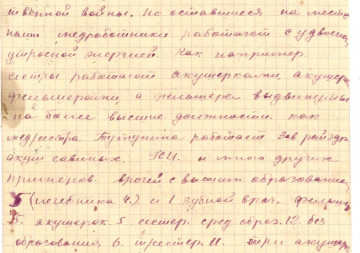 ственной войны. Но оставшиеся на места
наши медработники работают с удвоен
утроеной энергией. Как например
сестры работают акушерками, акушер
фельшерами, а фельшера выдвинуты
на более высшие должности. как
медсестра работает зав райздра
и много других
примеров. врачей с высшим образованием
5 (лечебника 4.) и 1 зубной врач.
акушерок. 5 сестер. сред образ. 12. без
образования 6. м/сестер. 11. три акушер